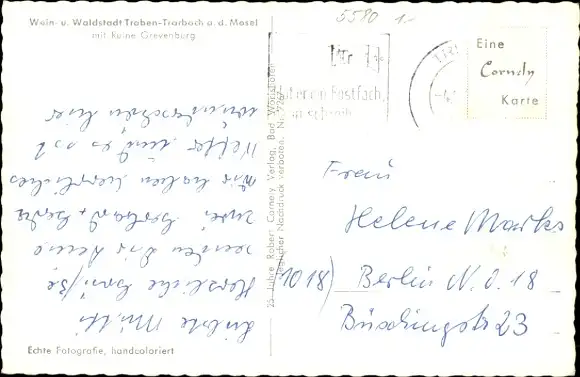 Wein- u. Waldstadt Traben-Trarbach a. d. Mosel
mit Ruine Grevenburg
Liebste Mutti
Herzliche Grüße
senden Dir Deine
zwei
Wir haben herrliches
Wetter und es ist
wunderschön hier
Echte Fotografie, handcoloriert
25 Jahre Robert Cornely Verlag, Bad Wörishofen
Jeglicher Nachdruck verboten. Nr.
5580 1.-
Postfach
Eine
Cornely
Karte
Frau
Helene Marks
1018) Berlin N.O. 18
Büschingstr 23